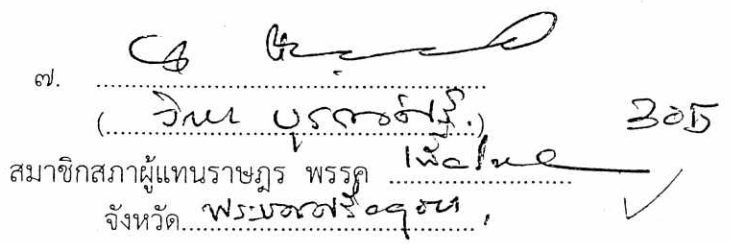 ๗.
( วิทยา บุรณศิริ ) ๓๐๕
สมาชิกสภาผู้แทนราษฎร พรรค เพื่อไทย
จังหวัด พระนครศรีอยุธยา